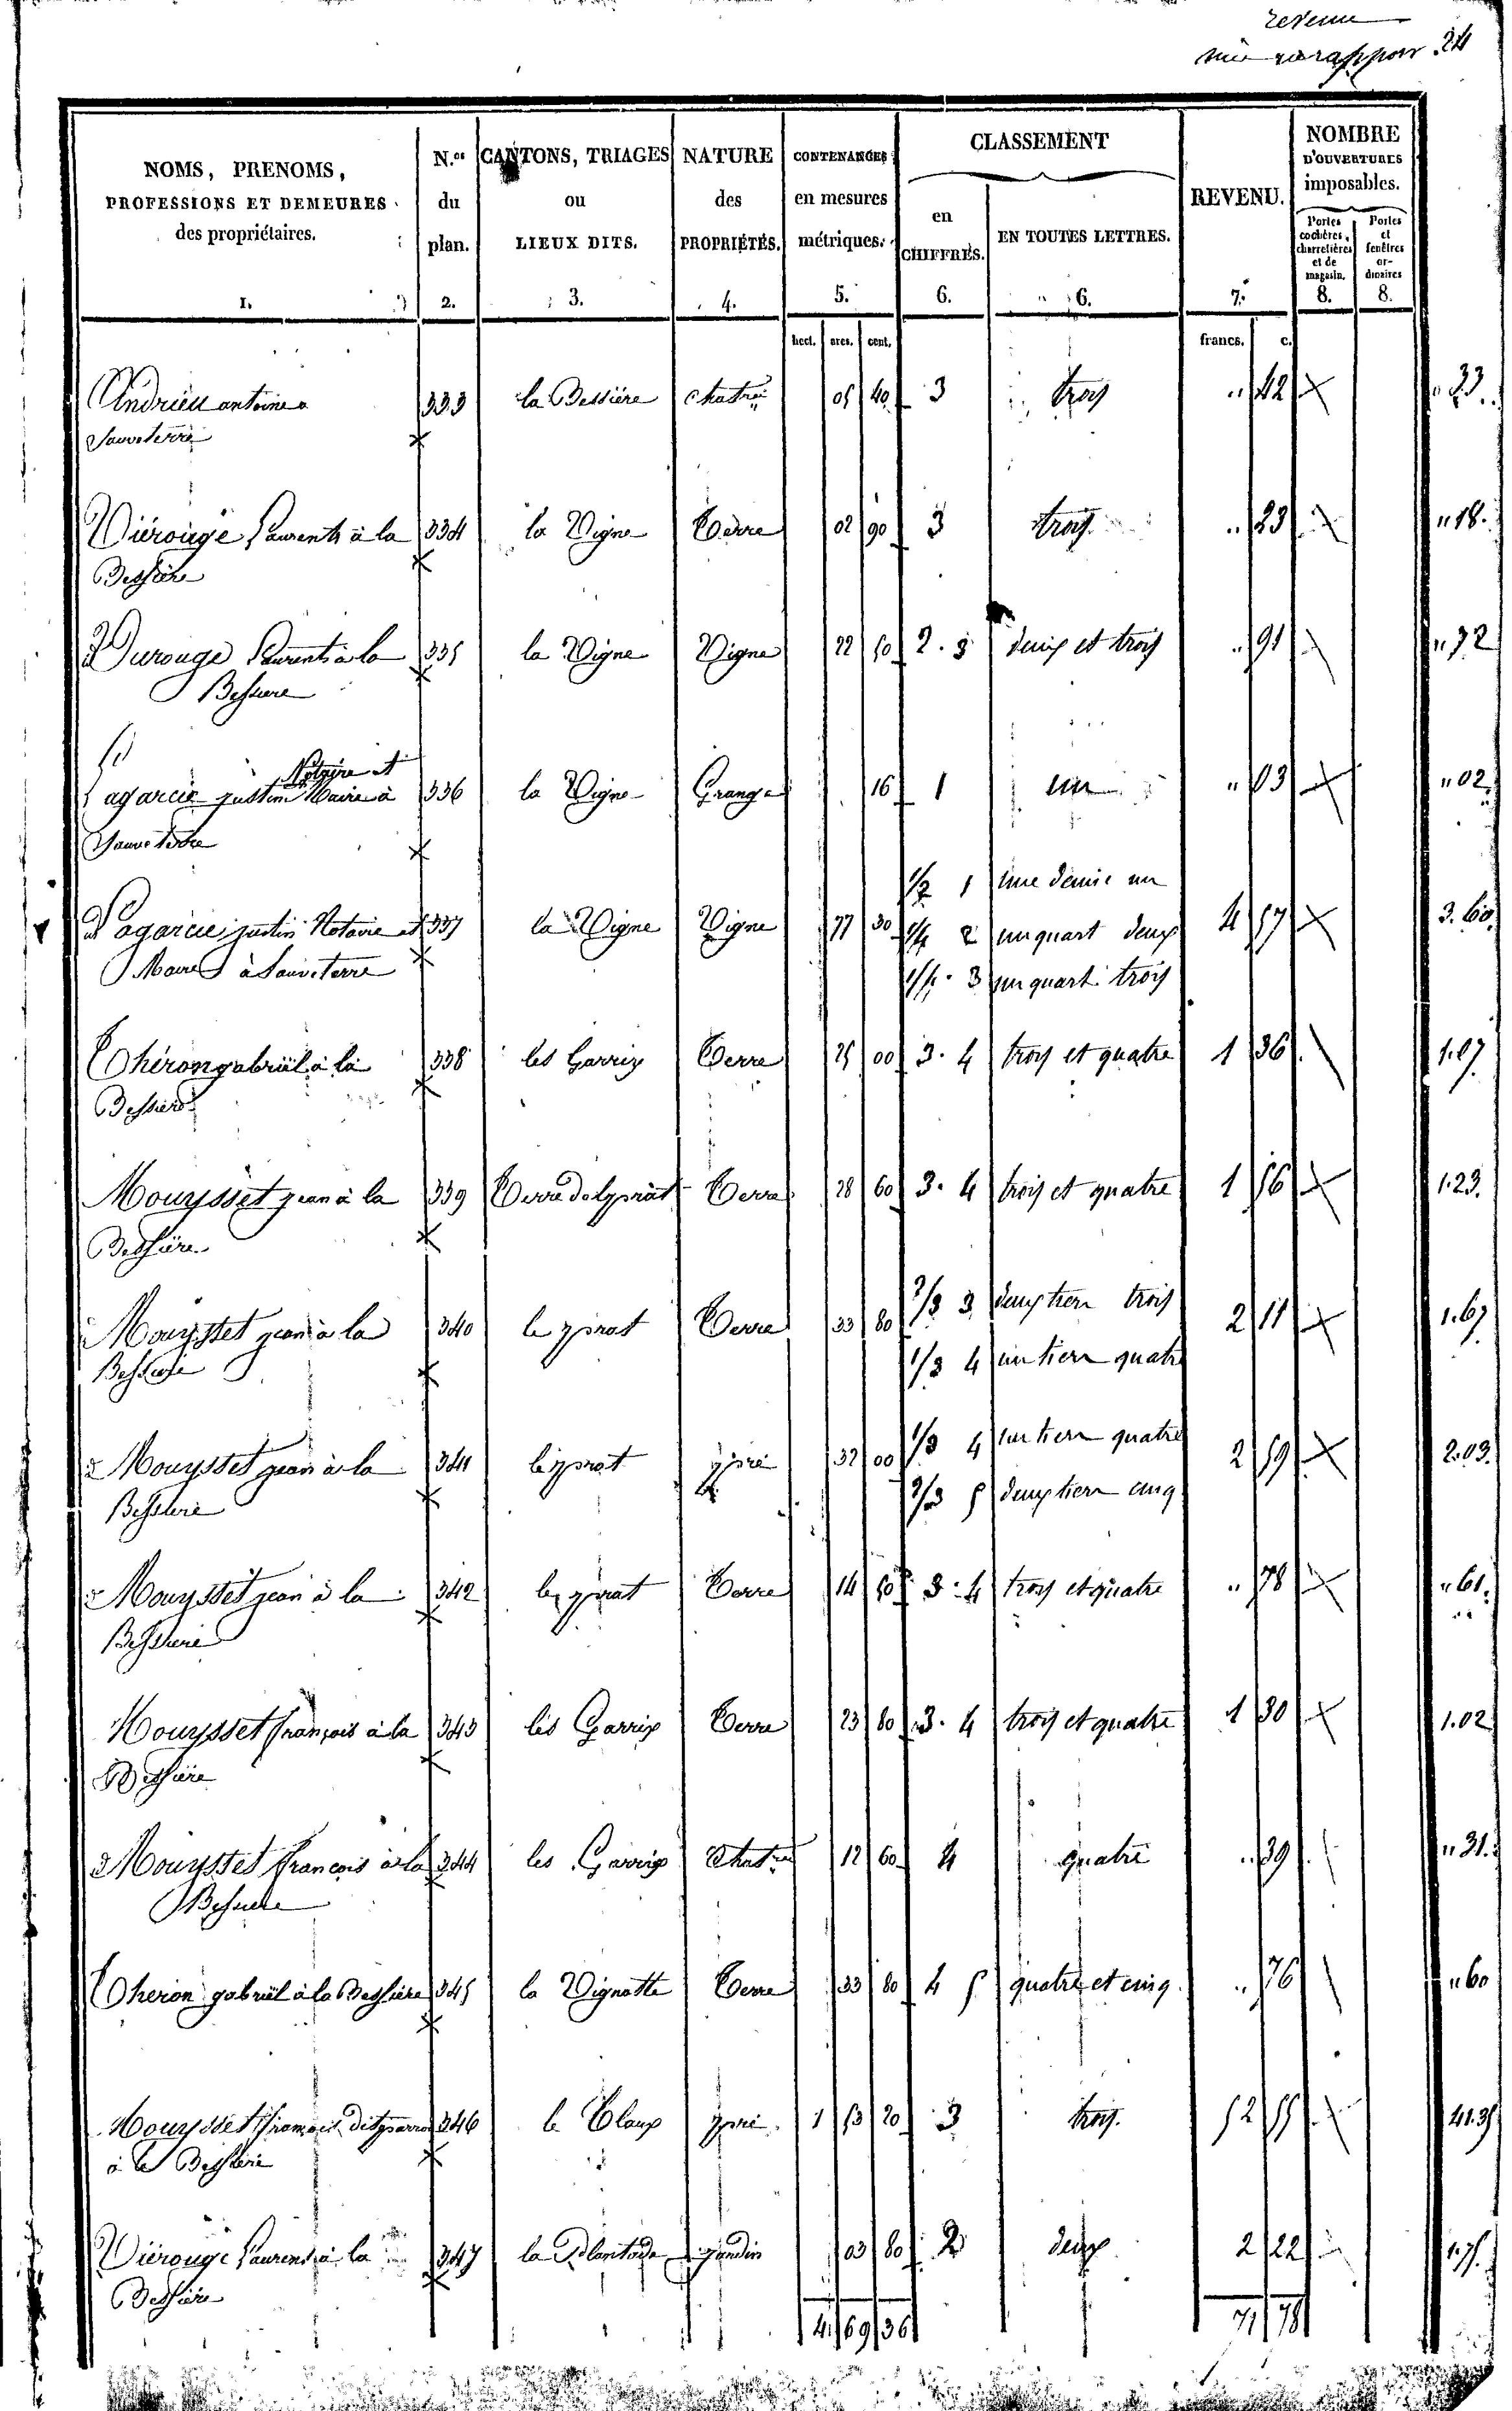 revenue
24
NOMS, PRENOMS, PROFESSIONS ET DEMEURES des propriétaires. 1.
N.os du plan. 2.
CANTONS, TRIAGES ou LIEUX DITS. 3.
NATURE des PROPRIÉTÉS. 4.
CONTENANCES en mesures métriques. 5.
CLASSEMENT
en CHIFFRES. 6.
EN TOUTES LETTRES. 6.
REVENU. 7.
NOMBRE D'OUVERTURES imposables.
Portes cochères, charretières et de magasin. 8.
Portes et fenêtres ordinaires 8.
hect. ares. cent. francs. c.
Andrieu antoine a 333 la Bessière 05 40 3 trois .. 42 " 33.
Sauveterre
Viérouge Laurent à la 334 la Vigne Terre 02 90 3 trois .. 23 " 18.
Bessière
Laurent à la 335 la Vigne Vigne 22 50 2. 3 deux et trois .. 91 " 72
Bessiere
Notaire et
Lagarcie justin Maire à 336 la Vigne Grange 16 1 un " 03 " 02
Sauveterre
1/2 1 une demie un
Lagarcie justin Notaire et 337 la Vigne Vigne 77 30 1/4 2 un quart deux 4 57 3. 60.
Maire à Sauveterre 1/4 3 un quart trois
Théron gabriël à la 338 les Garrix Terre 25 00 3. 4 trois et quatre 1 36 1.07
Bessiere
Mouysset jean à la 339 Terre del prat Terre 28 60 3. 4 trois et quatre 1 56 1.23.
Bessière
2/3 3 deux tiers trois
Mouysset jean à la 340 le prat Terre 33 80 2 11 1.67
Bessiere 1/3 4 un tiers quatre
1/3 4 un tiers quatre
Mouysset jean à la 341 le prat pré 32 00 2 59 2.03.
Bessiere 2/3 5 deux tiers cinq
Mouysset jean à la 342 le prat Terre 14 50 3. 4 trois et quatre .. 78 " 61.
Bessiere
Mouysset françois à la 343 les Garrix Terre 23 80 3. 4 trois et quatre 1 30 1.02
Bessière
Mouysset françois à la 344 les Garrix 12 60 4 quatre .. 39 " 31.
Bessiere
Theron gabriël à la Bessière 345 la Vignotte Terre 33 80 4 5 quatre et cinq .. 76 " 60
Mouysset françois dit 346 le Claux pré 1 53 20 3 trois. 52 55 41.35
à la Bessière
Viérouge Laurent à la 347 la Plantade jardin 03 80 2 deux 2 22 1.75.
Bessière
4 69 36 71 78